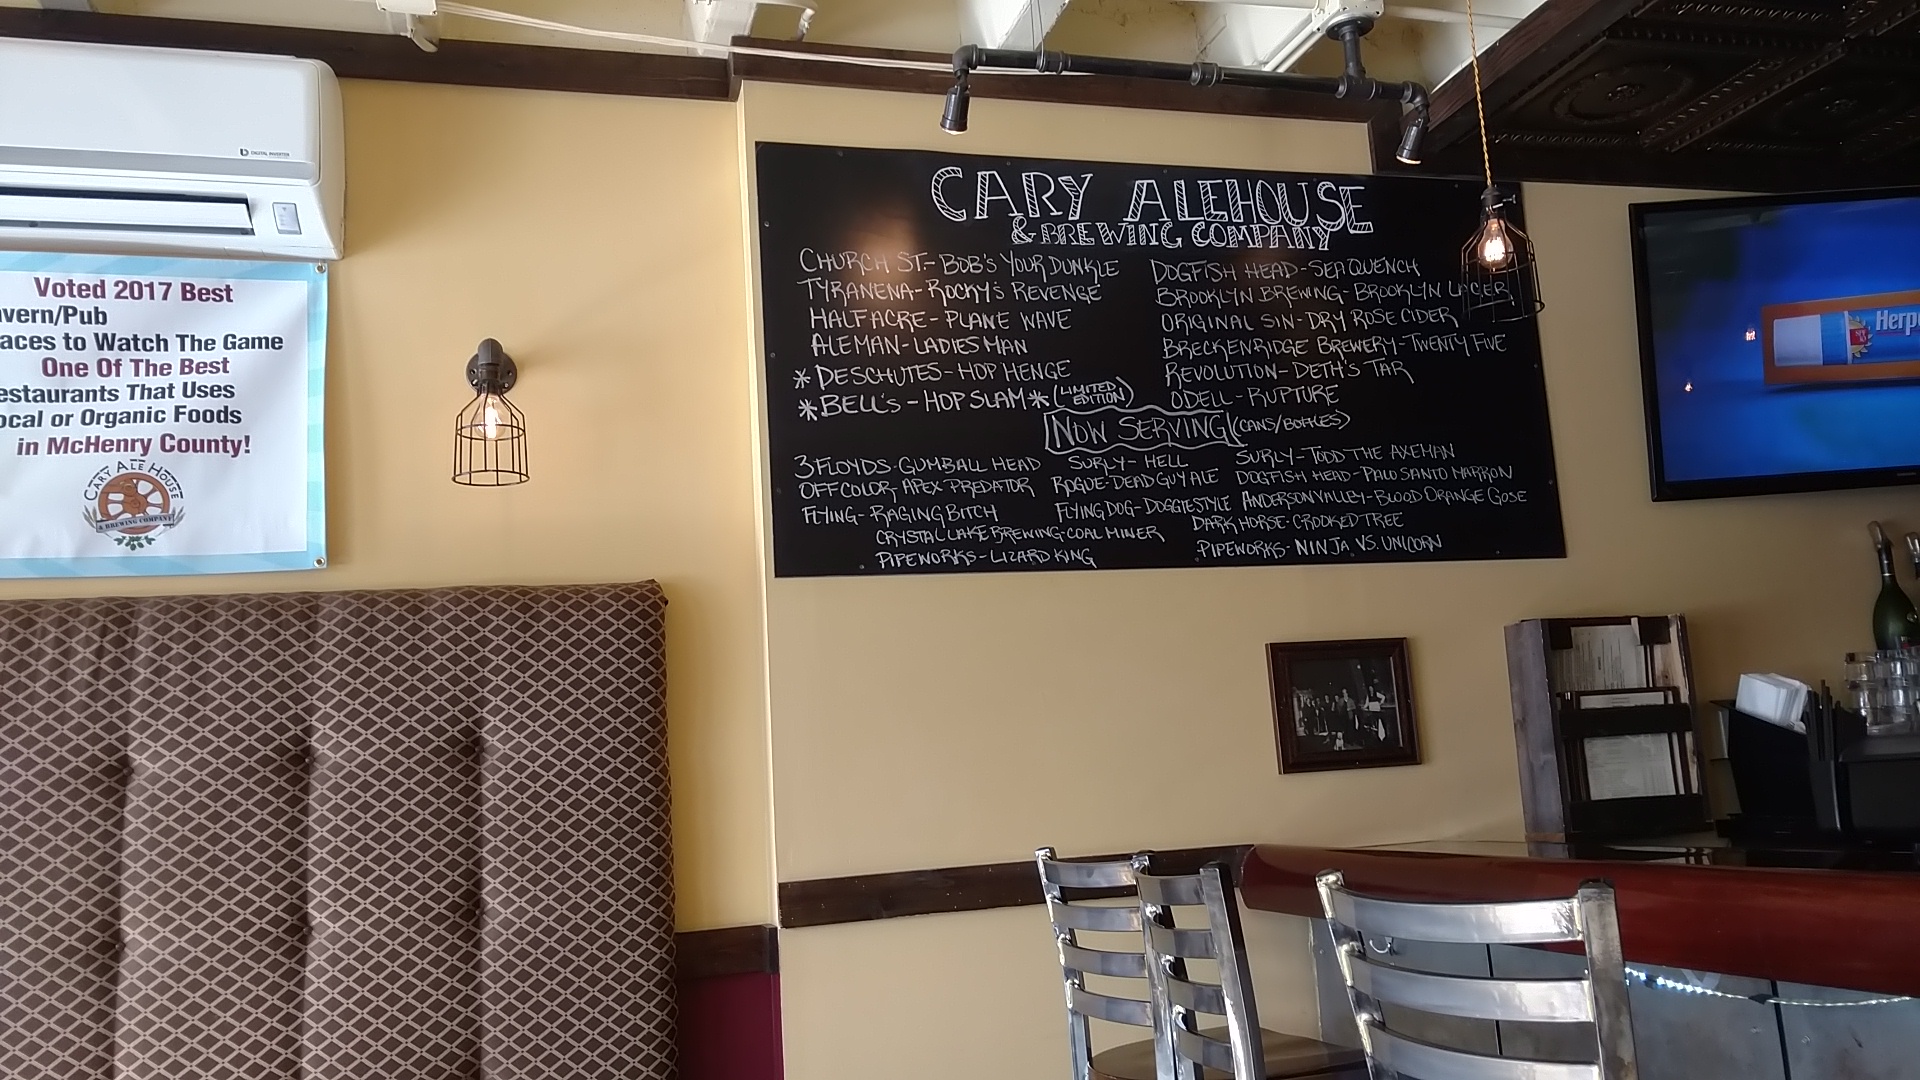 DIGITAL INVERTER
Voted 2017 Best
avern/Pub
aces to Watch The Game
One Of The Best
estaurants That Uses
ocal or Organic Foods
in McHenry County!
CARY ALE HOUSE
& BREWING COMPANY
CARY ALEHOUSE
& BREWING COMPANY
CHURCH ST.- BOB'S YOUR DUNKLE
TYRANENA- ROCKY'S REVENGE
HALF ACRE- PLANE WAVE
ALEMAN- LADIES MAN
*DESCHUTES- HOP HENGE
*BELL'S - HOP SLAM* (LIMITED EDITION)
DOGFISH HEAD-SEAQUENCH
BROOKLYN BREWING- BROOKLYN LAGER
ORIGINAL SIN-DRY ROSE CIDER
BRECKENRIDGE BREWERY-TWENTY FIVE
REVOLUTION- DETH'S TAR
ODELL- RUPTURE
NOW SERVING (CANS/BOTTLES)
3 FLOYDS-GUMBALL HEAD SURLY- HELL SURLY-TODD THE AXEMAN
OFF COLOR, APEX PREDATOR ROGUE-DEAD GUY ALE DOGFISH HEAD-PALO SANTO MARRON
FLYING- RAGING BITCH FLYING DOG- DOGGIESTYLE ANDERSON VALLEY-BLOOD ORANGE GOSE
CRYSTAL LAKE BREWING-COAL MINER DARK HORSE-CROOKED TREE
PIPEWORKS-LIZARD KING PIPEWORKS- NINJA VS. UNICORN
Herpe